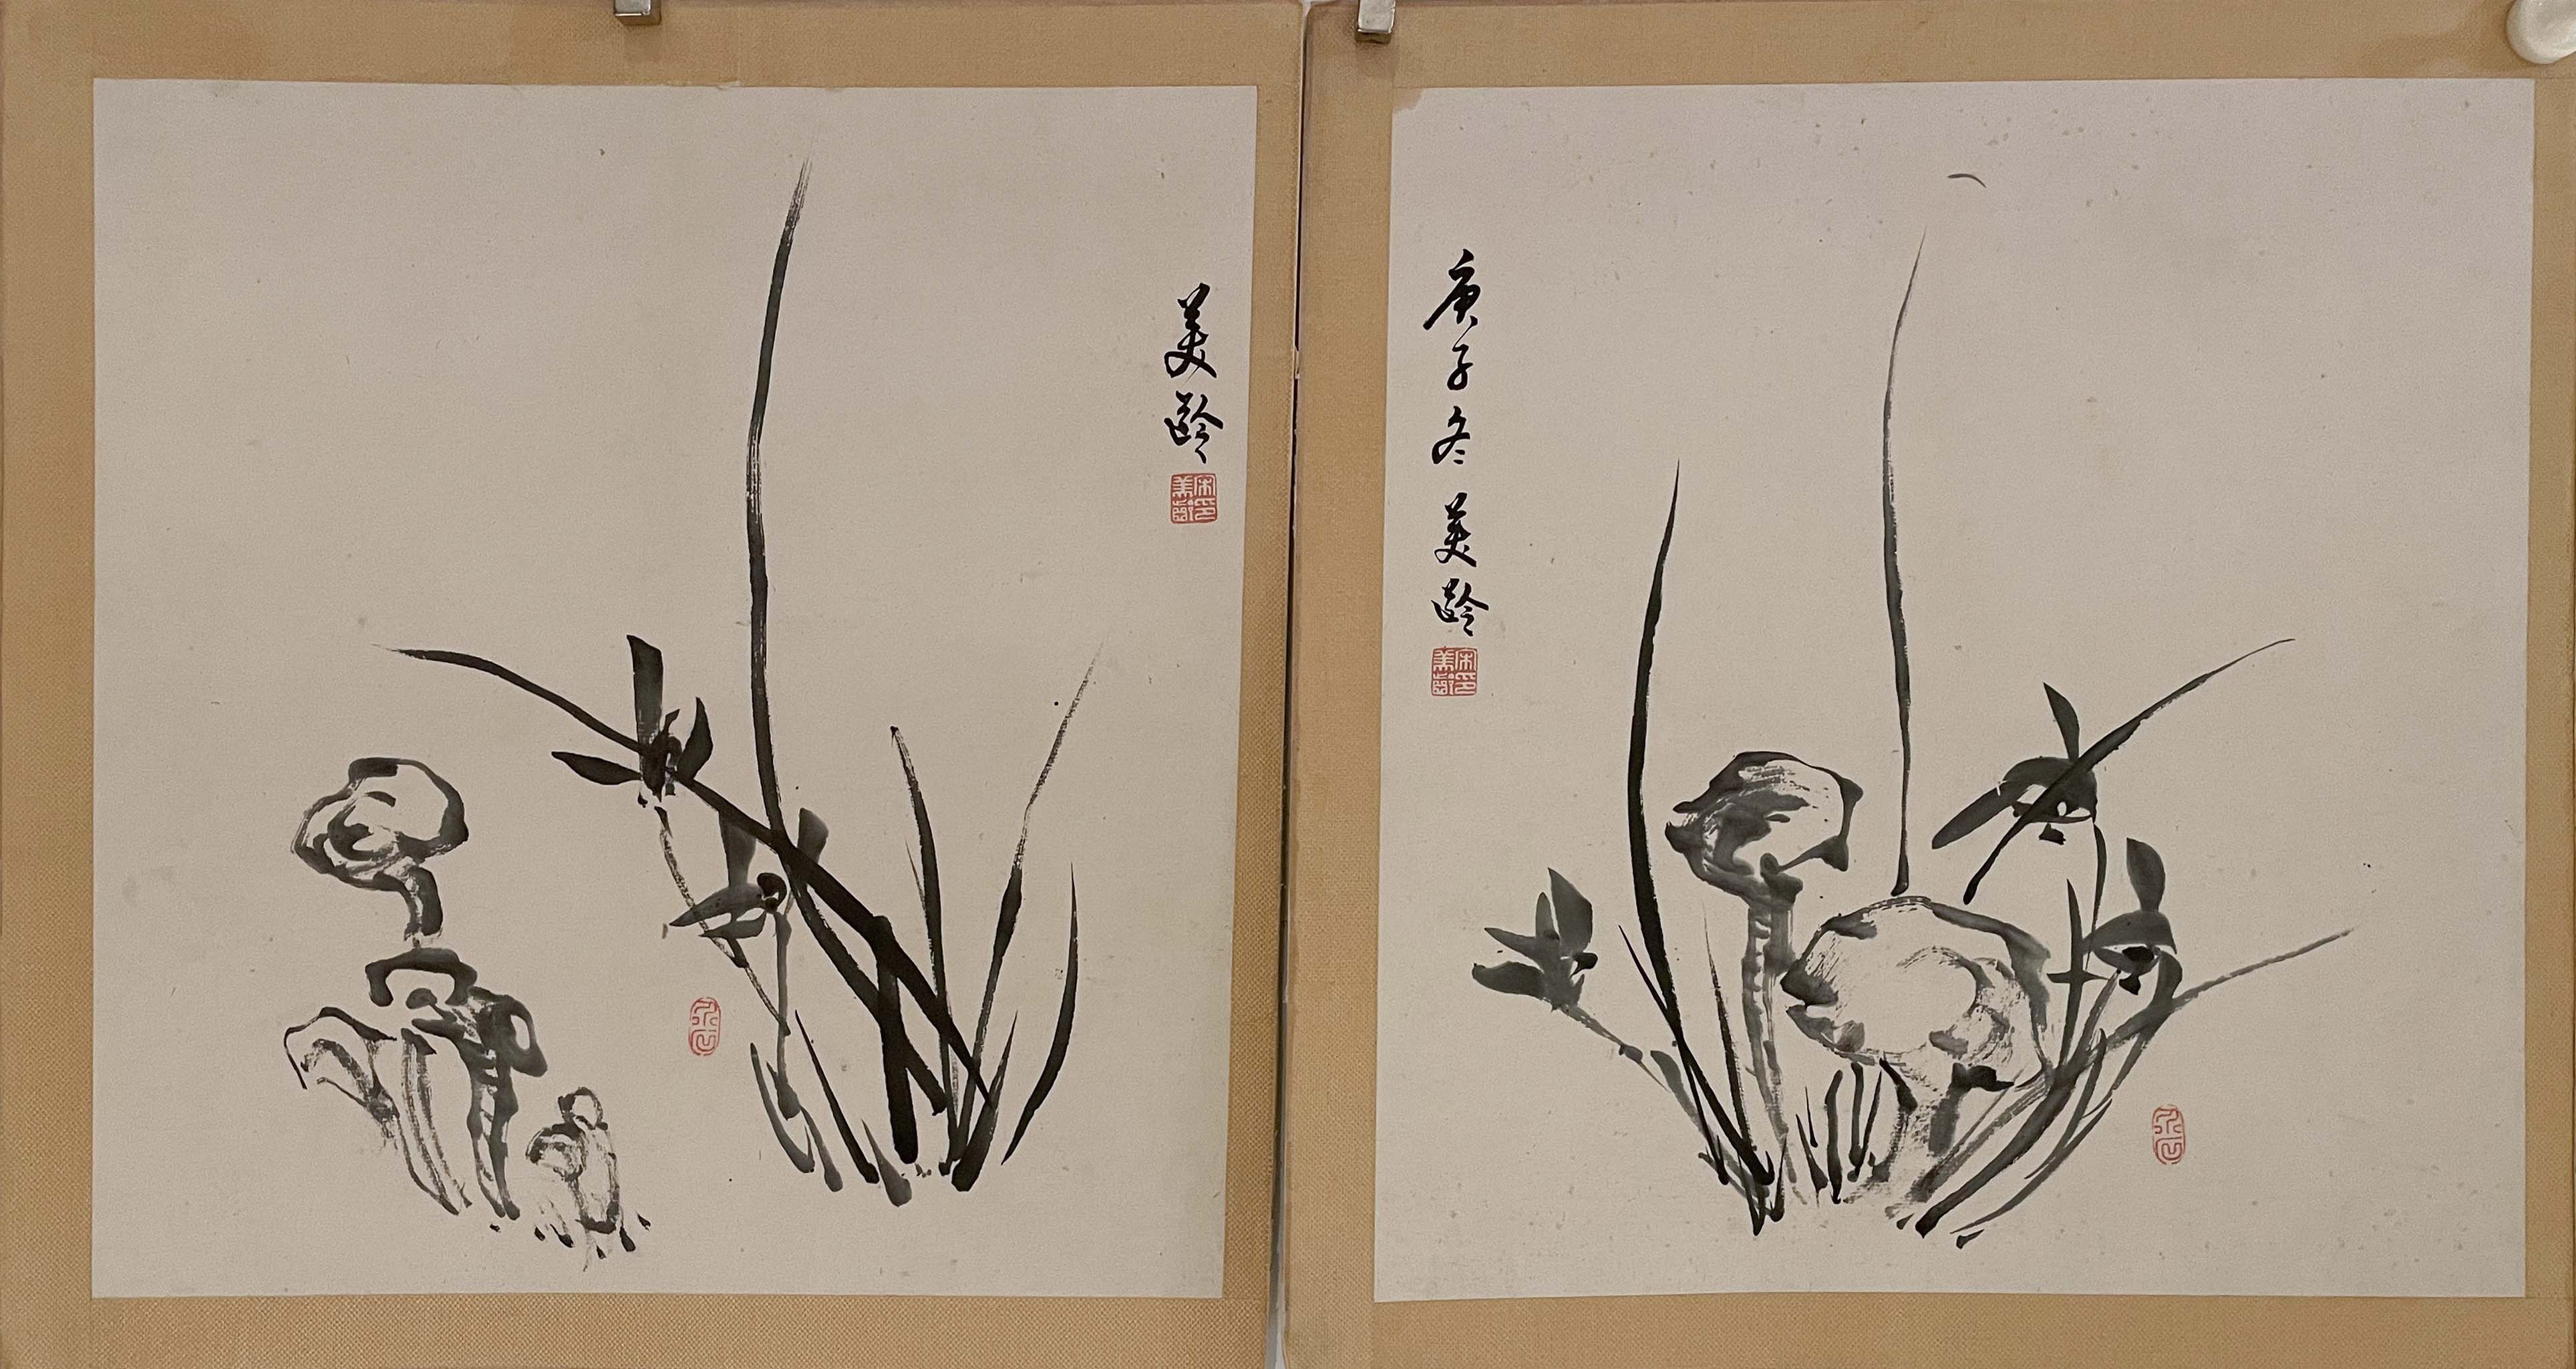 美齡
宋美齡印
庚子冬 美齡
宋美齡印